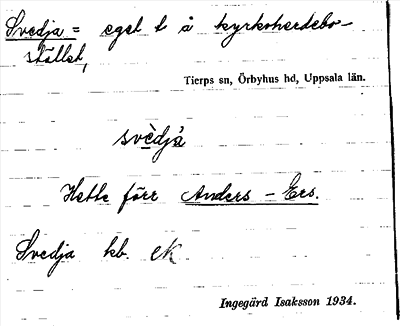 Svedja = eget t å kyrkoherdebo-
stället,
Tierps sn, Örbyhus hd, Uppsala län.
svèdjà
Hette förr Anders - Ers.
Svedja kb. ek
Ingegärd Isaksson 1934.